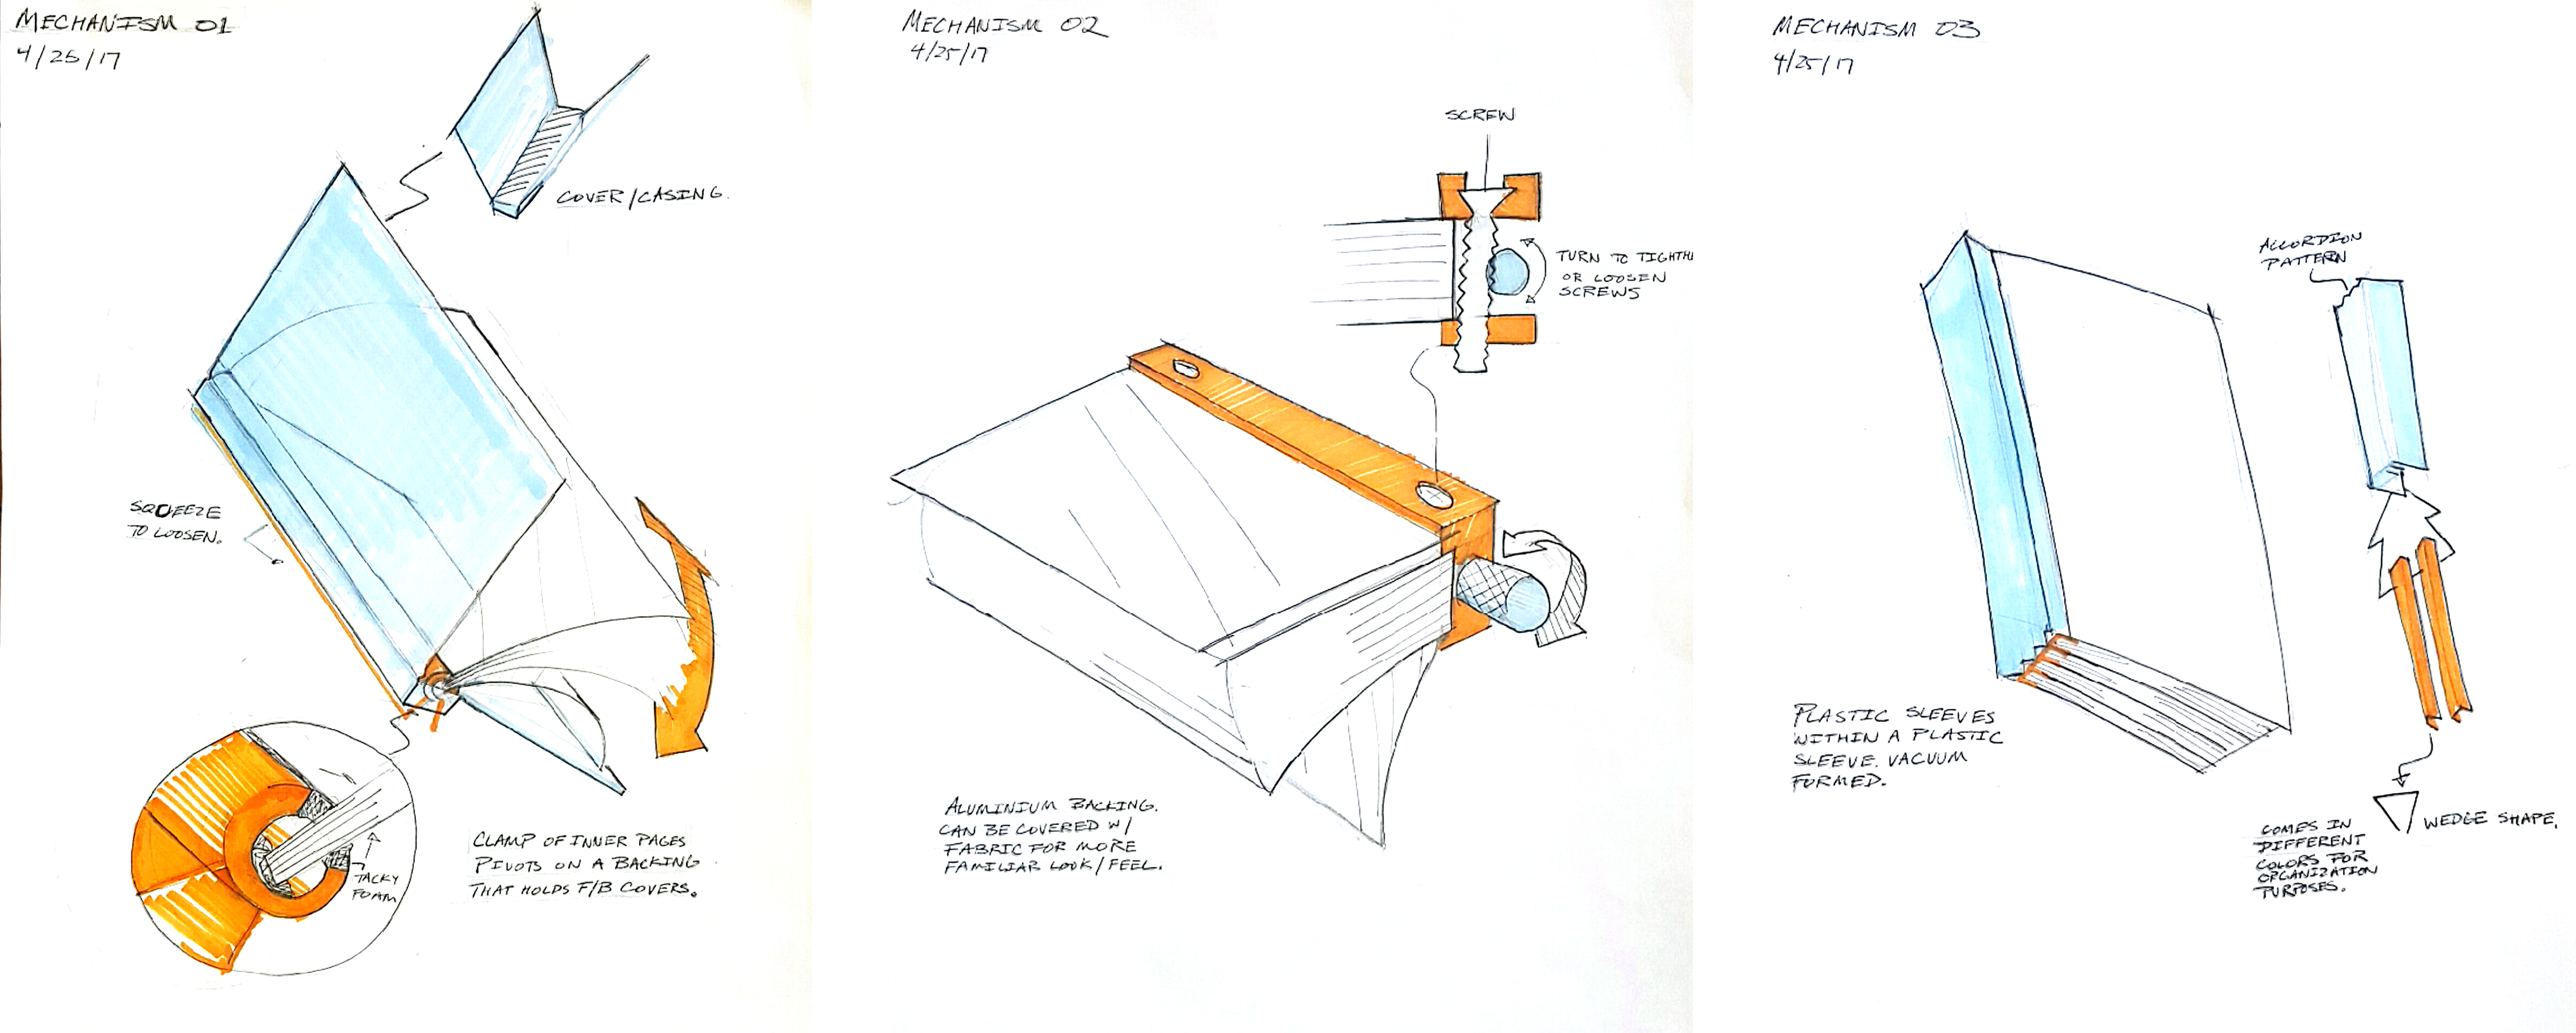 MECHANISM 01
4/25/17
COVER/CASING.
SQUEEZE
TO LOOSEN.
TACKY
FOAM
CLAMP OF INNER PAGES
PIVOTS ON A BACKING
THAT HOLDS F/B COVERS.
MECHANISM 02
4/25/17
SCREW
TURN TO TIGHTH
OR LOOSEN
SCREWS
ALUMINIUM BACKING.
CAN BE COVERED W/
FABRIC FOR MORE
FAMILIAR LOOK/FEEL.
MECHANISM 03
4/25/17
ACCORDION
PATTERN
PLASTIC SLEEVES
WITHIN A PLASTIC
SLEEVE. VACUUM
FORMED.
WEDGE SHAPE.
COMES IN
DIFFERENT
COLORS FOR
ORGANIZATION
PURPOSES.